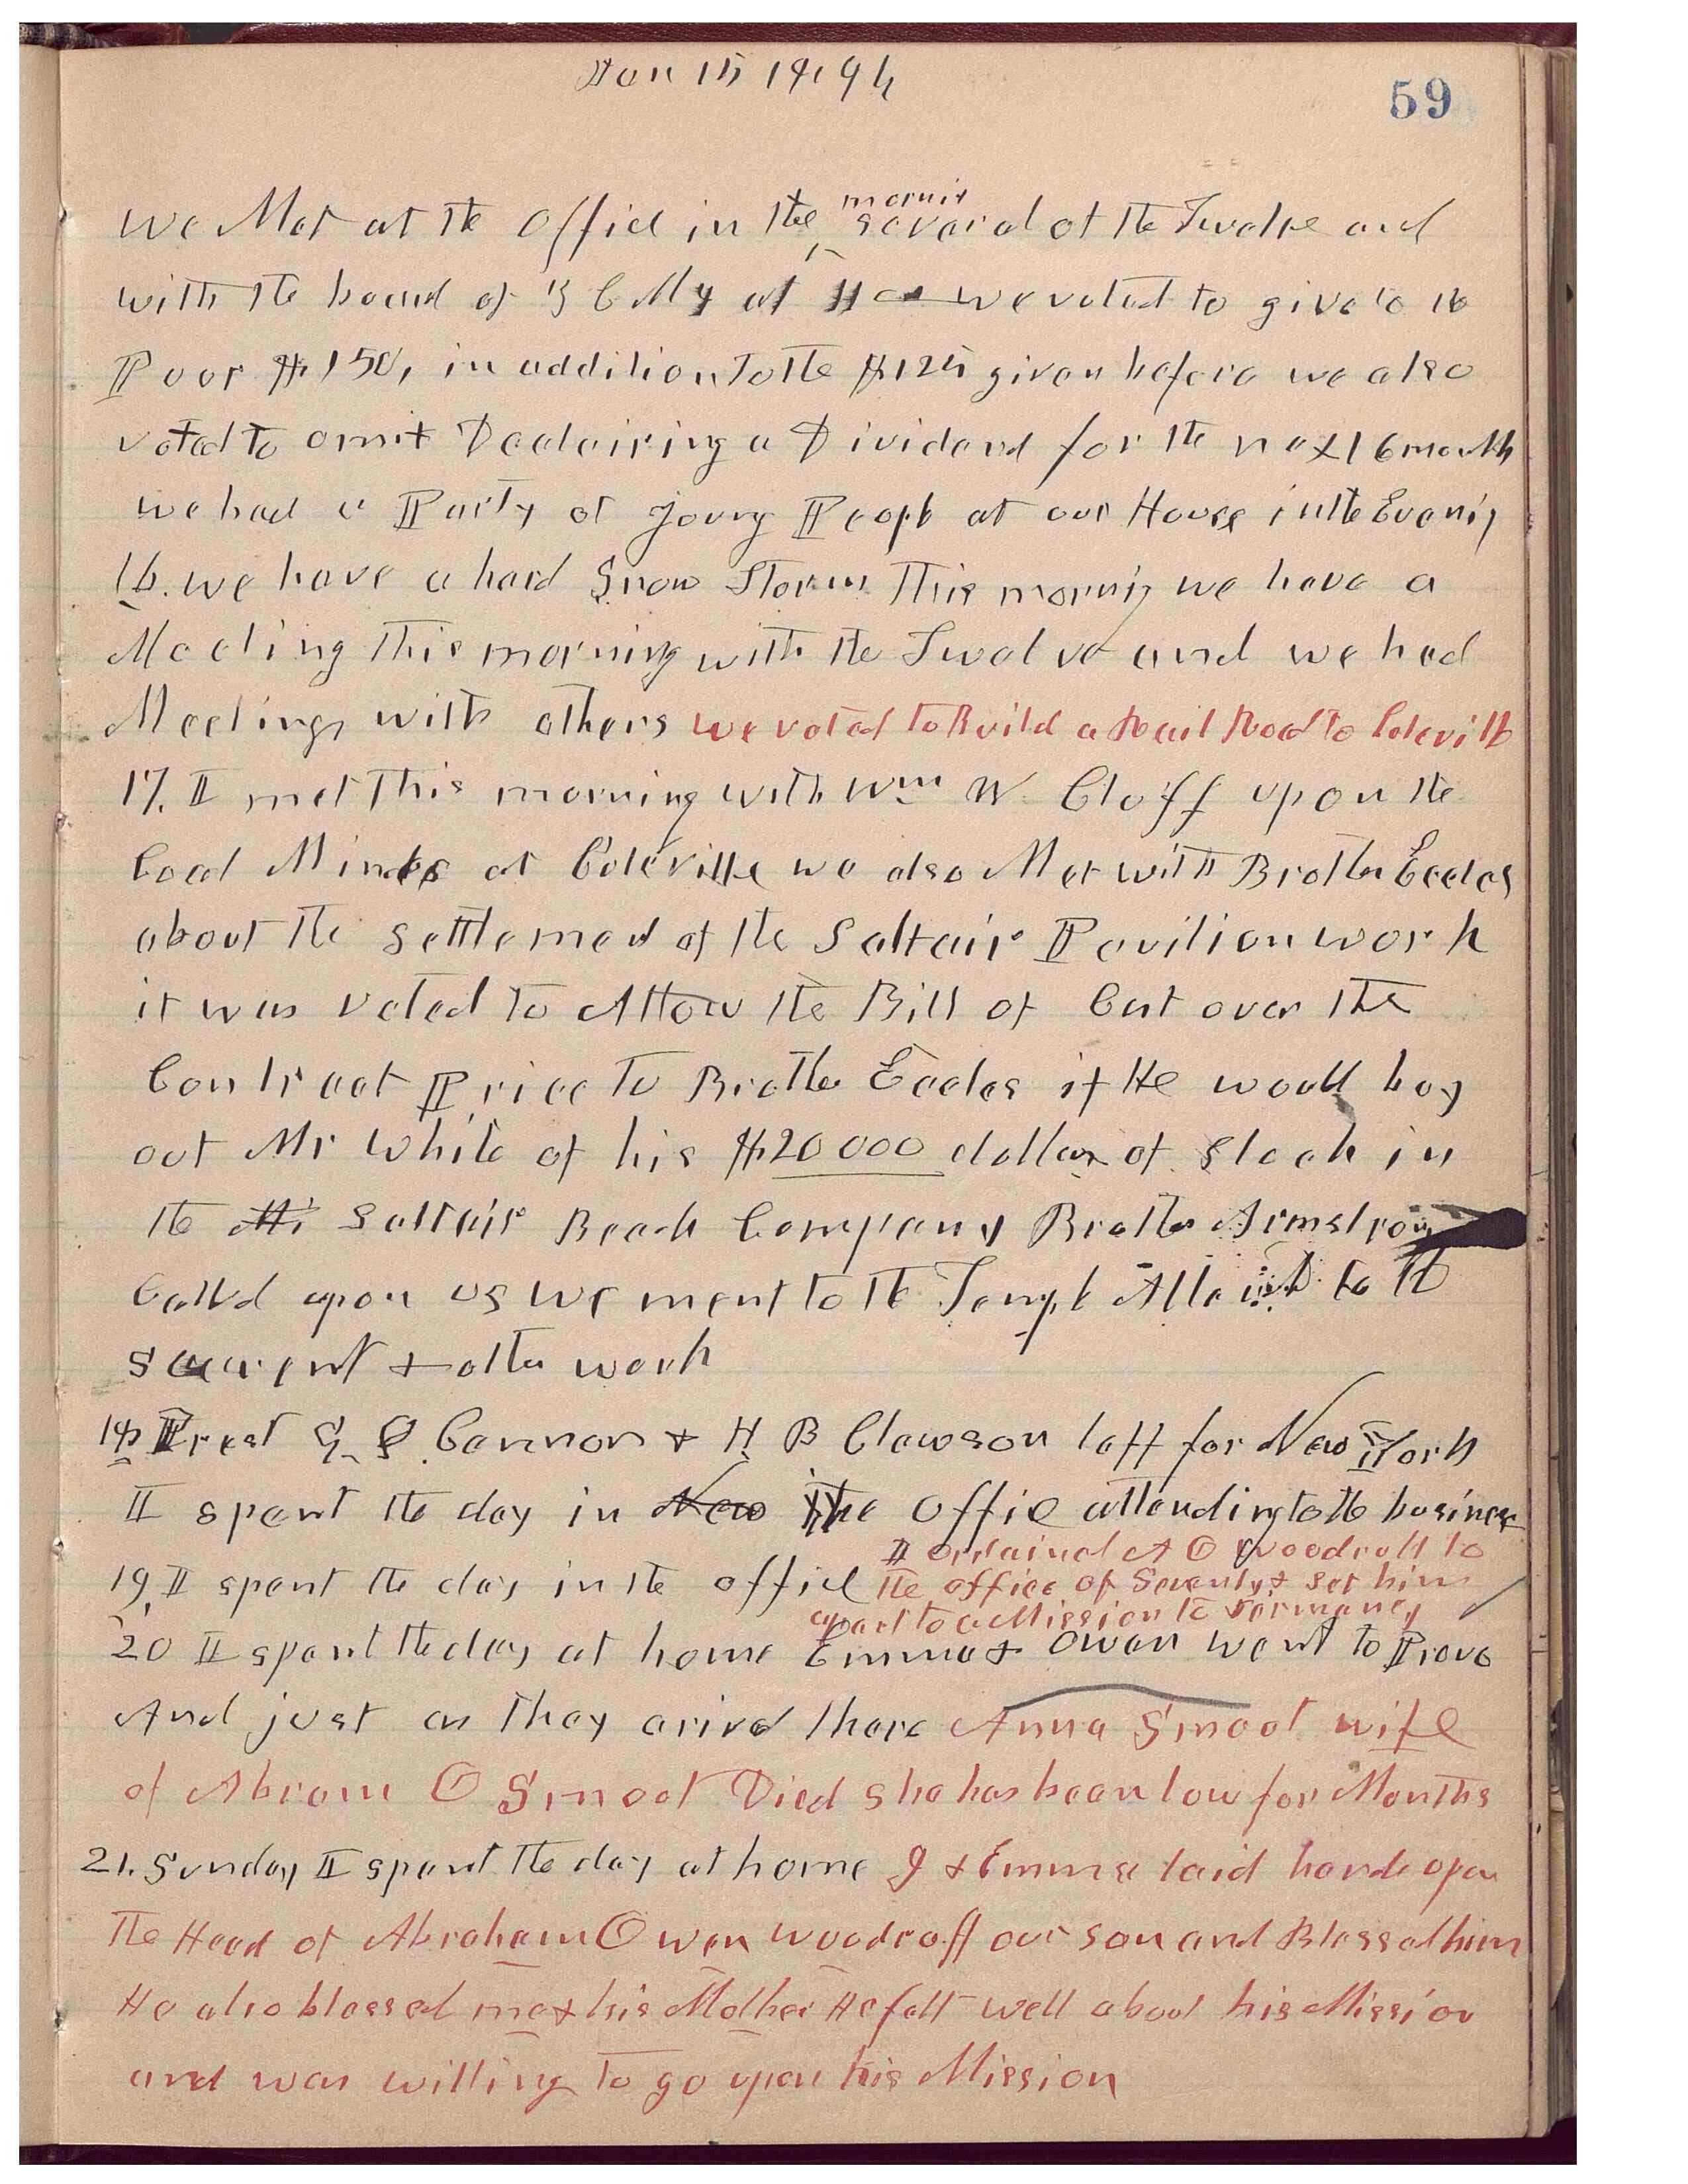 Jan 15 1894
59
we Met at the Office in the ^morning^ several of the Twelve and
with the board of Z C M I at we voted to give to the
Poor $150, in addition to the $125 given before we also
voted to omit Declairing a Dividend for the next 6 month
we had a Party of young People at our House in the Evenig
16. we have a hard Snow Storm This mornig we have a
Meeting this morning with the Twelve and we had
Meetings with others we voted to Build a Rail Road to Coleville
17. I met This morning with Wm W Cluff upon the
Coal Mines at Coleville we also Met with Brother Eccles
about the settlement of the Saltair Pavilion work
it was voted to Allow the Bill of Cost over the
Contract Price to Brother Eccles if He would buy
out Mr White of his $20000 dollars of Stock in
the Saltair Beach Company Brother Armstrong
Called upon us we went to the Temple to the
& other work
18 Prest G Q Cannon & H B Clawson left for New York
I spent the day in New the Office attending to the business
19, I spent the day in the office I ordained A O Woodruff to
the office of Seventy & set him
apart to a Mission to Germaney
20 I spent the day at home Emma & Owen went to Provo
And just as they arived there Anna Smoot wife
of Abram O Smoot Died she has been low for Months
21. Sunday I spent the day at home I & Emma laid hands upon
the Head of Abraham Owen Woodruff our son and Blessed him
He also blessed me & his Mother He felt well about his Mission
and was willing to go upon his Mission